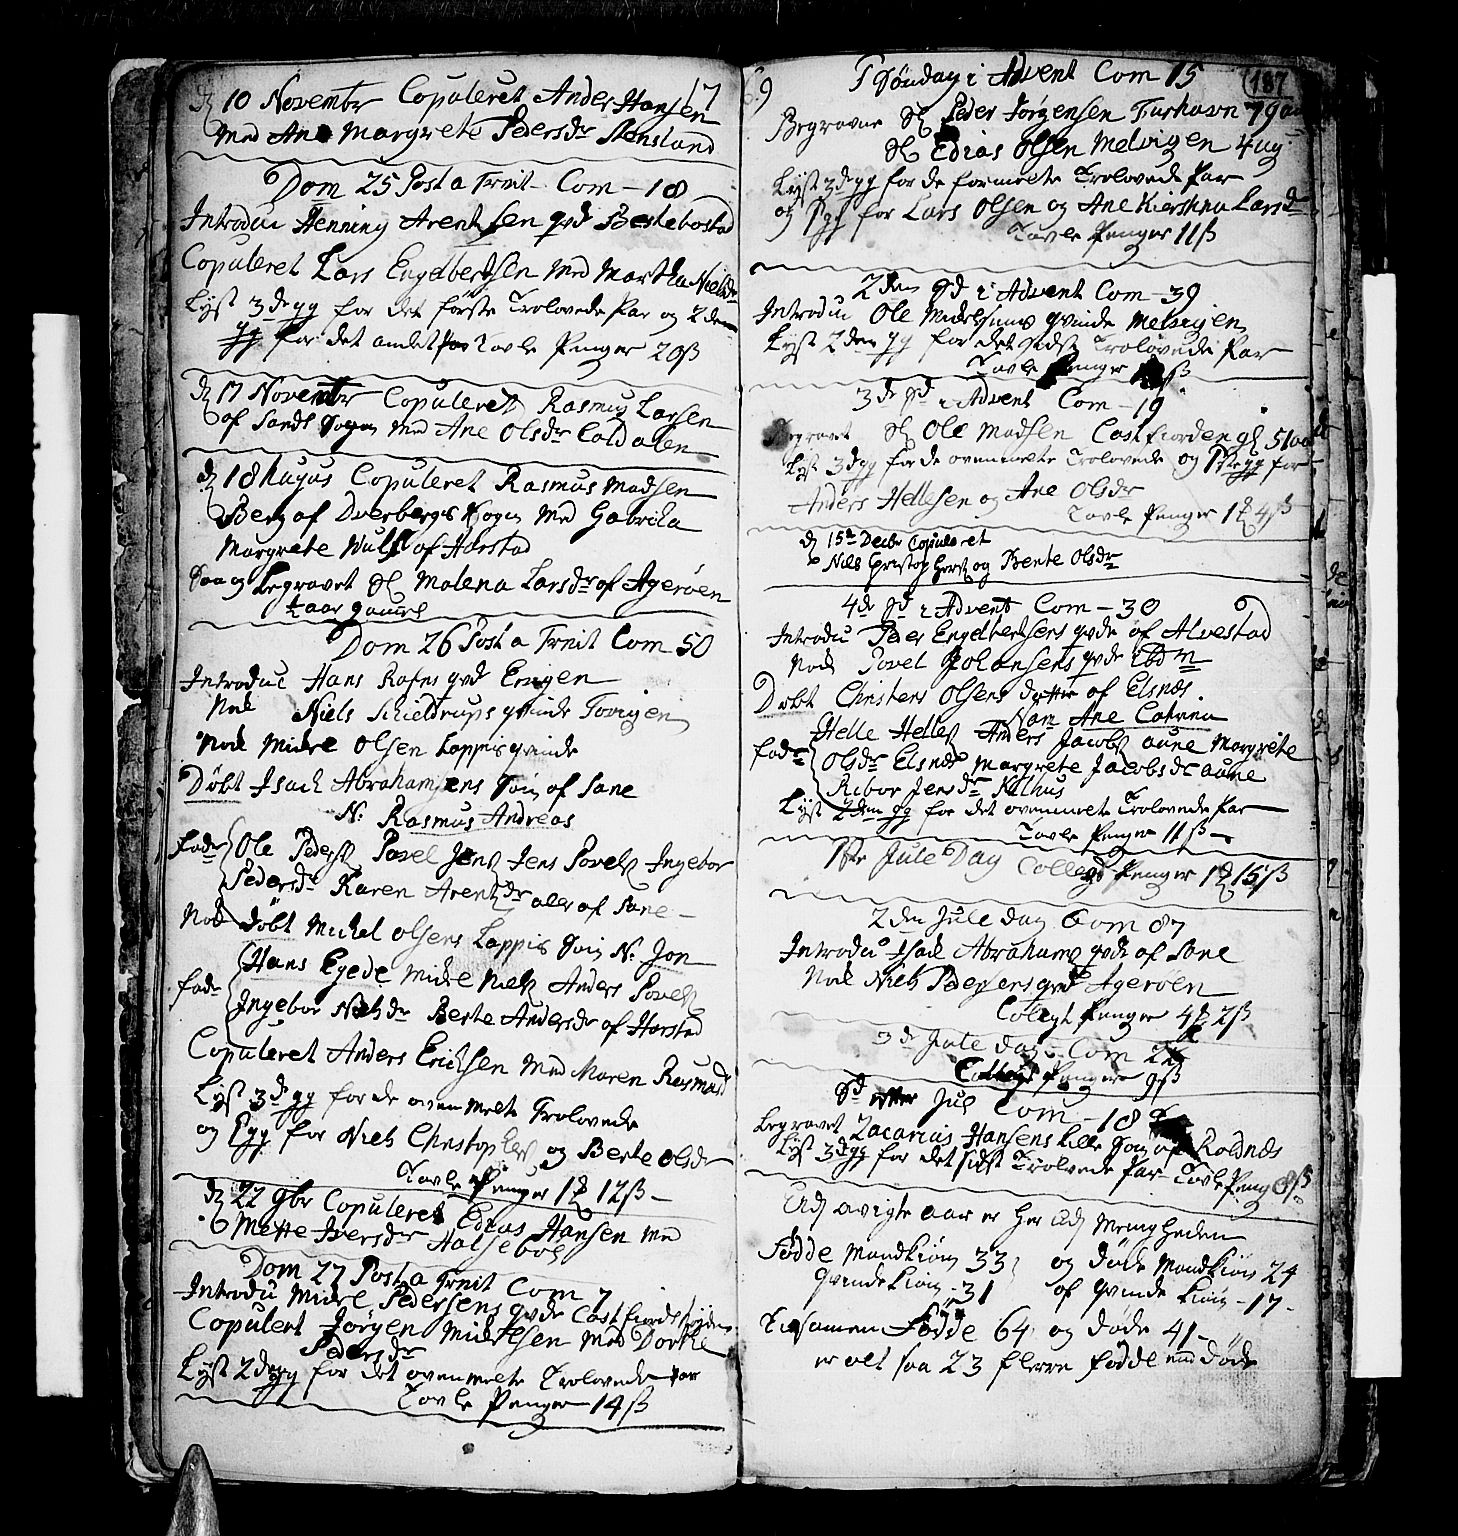 17
d 10 Novembr Copuleret Anders Hansen
Med Ane Margrete Pedersdr Stensland
Dom 25 Post a Trnit Com - 18
Introduc Henning Arentsen qvd Bestebostad
Copuleret Lars Engelbertsen Med Martha Nielsdr
Lyst 3de gg for det förste Trolovede Par og 2den
gg for det andet Par Tavle Penger 20 ß
d 17 Novembr Copuleret Rasmus Larsen
af Sands Sogn Med Ane Olsdr
d 18 hujus Copuleret Rasmus Madsen
Berg af Dverbergs Sogn Med Gabrila
Margrete Wulf af Harstad
Saa og Begravet Sl Malena Larsdr af Ageröen
½ aar gammel
Dom 26 Post a Trnit Com 50
Introduc Hans Rafns qvd Erigen
Nok Niels Schieldrups qvinde Tovigen
Nok Mickel Olsen Lappis qvinde
Döbt Isach Abrahamsens Sön af Sane
N: Rasmus Andreas
Fadr Ole Peders Povel Jens Jens Povels Ingebor
Pedersdr Karen Arentzdr alle af Sane
Nok Döbt Mickel Olsens Lappis Sön N: Jon
Hans Egede Mickel Niels Anders Povels
Fadr Ingebor Nielsdr Berte Andersdr af Harstad
Copuleret Anders Ericksen Med Maren Rasmusd
Lyst 3de gg for de oven melte Trolovede
og gg for Niels Christophers og Berte Olsdr
Tavle Penger 1 12 ß
d 22 9br Copuleret Edias Hansen Med
Mette Iversdr Halseboe
Dom 27 Post a Trnit Com 7
Introdu Mickel Pedersens qvde Cast fiords
Copulert Jörgen Mickelsen Med Dorthe
Pedersdr
Lyst 2den gg for det ovenmelte Trolovede Par
Tavle Penger 14 ß
69
187
1 Söndag i Advent Com 15
Begravne Sl Peder Jörgensen Turhavn 79 aar
Sl Edias Olsen Melvigen 4 ug
Lyst 3de gg for de formelte Trolovede Par
og gg for Lars Olsen og Ane Kierstina Larsdr
Tavle Penger 11 ß
2den Sd i Advent Com - 39
Introdu Ole qvinde Melvigen
Lyst 2den gg for det sidst Trolovede Par
Tavle Penger ß
3de Sd i Advent Com - 19
Begravet Sl Ole Madsen Cast fiorden gl 51 aar
Lyst 3de gg for de ovenmelte Trolovede og 1ste gg for
Anders Hellesen og Ane Olsdr
Tavle Penger 1 4 ß
d 15de Decbr Copuleret
Niels Christophers og Berte Olsdr
4de Sd i Advent Com - 30
Introdu Peder Engelbertsens qvde af Alvestad
Nok Povel Johansens qvde ibdm
Döbt Christens Olsens dotter af Elsnes.
Nom Ane Catrina
Helle Helles Anders Jacobs aune Margrete
Fadr Olsdr Elsnes Margrete Jacobsdr aune
Rebor Jensdr Kilhus
Lyst 2den gg for det ovenmelt Trolovede Par
Tavle Penger 11 ß
1ste Jule Dag Collegt Penger 1 15 ß
2den Jule dag Com 87
Introdu Isach Abrahams qvde af Sane
Nok Niels Pedersens qvd Ageröen
Collegt Penger 4 2 ß
3de Jule dag Com 26
Collegt Penger 9 ß
Sd efter Jul Com - 18
Begravet Zacarias Hansens lille Sön af Roldnes
Lyst 3de gg for det sidst Trolovede Par Tavle Peng 8 ß
Udj avigte aar er her udj Menigheden
Födde Mandkiön 33 og döde Mandkiön 24
Qvindekiön - 31 af Qvinde kiön - 17 -
Tilsamen Födde 64 og döde 41 -
er alt saa 23 flerre födde end döde